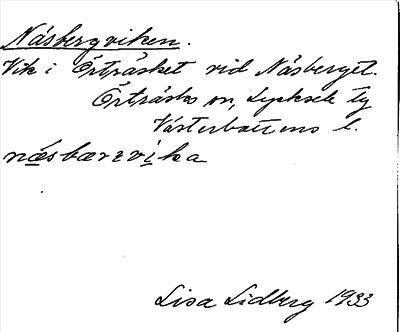 Näsbergviken.
Vik i Örträsket vid Näsberget.
Örträsks sn, Lycksele tg
Västerbottens l.
næsbærzvika
Lisa Lidberg 1933